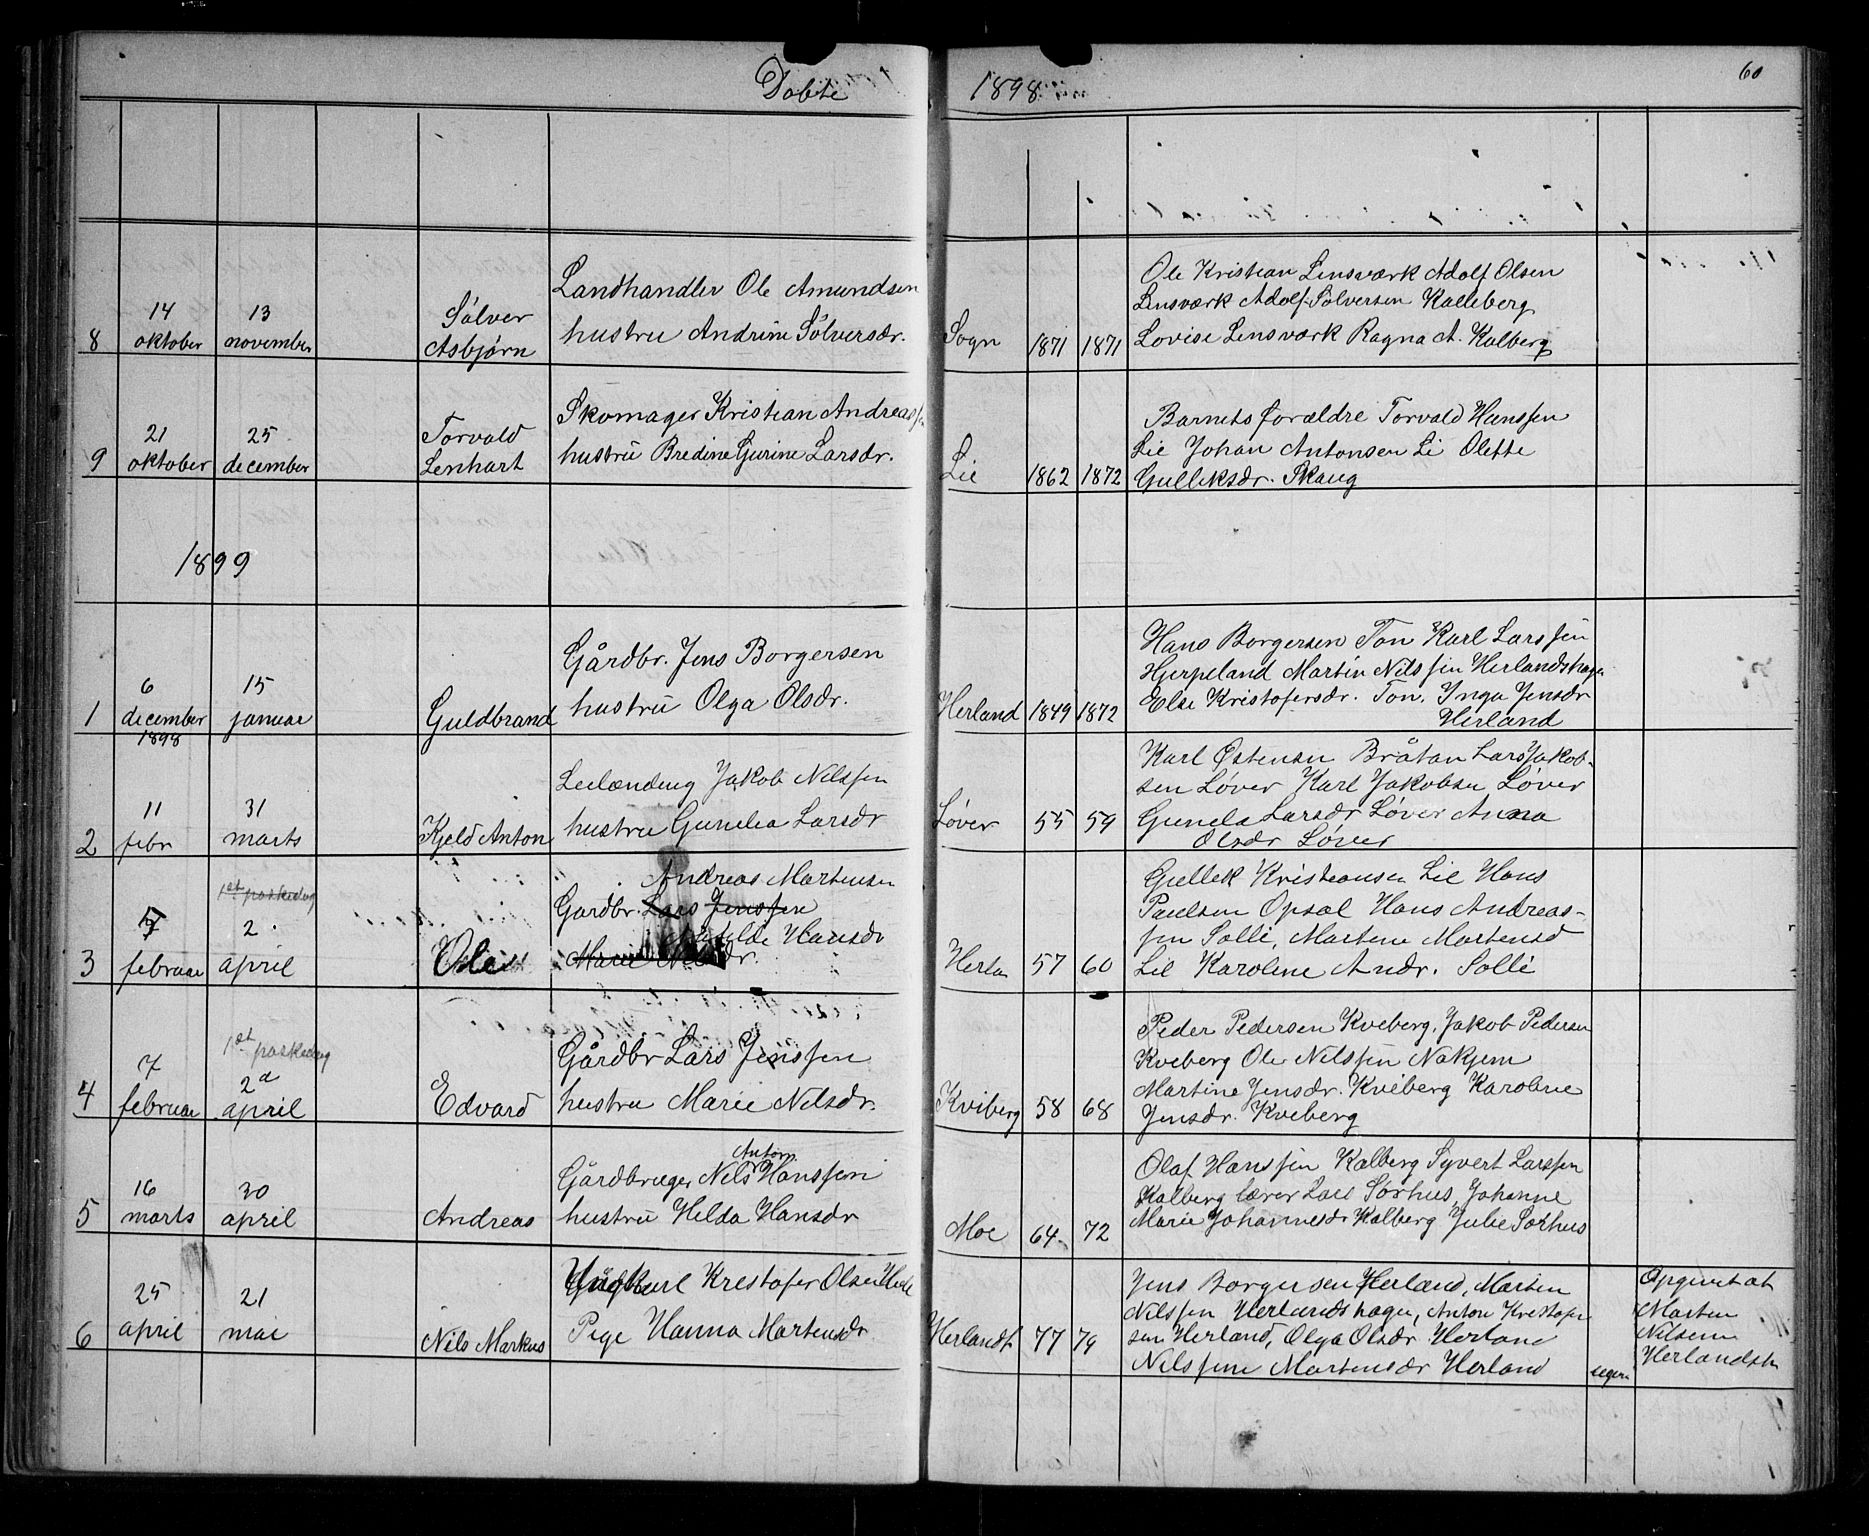 Døbte 1898 60
8 14 oktober 13 november Sølver Asbjørn
Landhandler Ole Amundsen
hustru Andrine Sølversdr.
Sogn 1871 1871
Ole Kristian Lensværk Adolf Olsen
Lensværk Adolf Sølversen Kalleberg
Lovise Lensværk Ragna A. Kalberg
9 21 oktober 25 december Torvald Lenhart
Skomager Kristian Andreassen
hustru Bredine Gurine Larsdr.
Lie 1862 1872
Barnets forældre Torvald Hanssen
Lie Johan Antonsen Li Olette
Gulleksdr. Skaug
1899
1 6 december 1898 15 januar Guldbrand
Gårdbr. Jens Borgersen
hustru Olga Olsdr.
Herland 1849 1872
Hans Borgersen Ton Karl Larssen
Hjerpeland Martin Nilssen Herlandshagen
Else Kristofersdr. Ton. Inga Jensdr
Herland
2 11 febr 31 marts Kjeld Anton
Leilænding Jakob Nilssen
hustru Gunelia Larsdr
Løver 55 59
Karl Østensen Bråtan Lars Jakob-
sen Løver Karl Jakobsen Løver
Gunela Larsdr Løver Anna
Olsdr Løver
3 februar 1st paskedag 2. april Ole
Andreas Martensen
Gardbr. Lars Jenssen
Hansdr
Marie Nilsdr.
Herla 57 60
Gullek Kristiansen Lie Hans
Paulsen Opsal Hans Andreas-
sen Solli, Martene Martensd
Lie Karoline Andr. Solli
4 7 februar 1st paskedag 2d april Edvard
Gårdbr Lars Jenssen
hustru Marie Nilsdr.
Kviberg 58 68
Peder Pedersen Kveberg, Jakob Pedersen
Kveberg Ole Nilssen Nakjem
Martine Jensdr. Kviberg Karoline
Jensdr. Kveberg
5 16 marts 30 april Andreas
Anton
Gårdbruger Nils Hanssen
hustru Helda Hansdr
Moe 64 72
Olaf Hanssen Kalberg Syvert Larssen
Kalberg lærer Lars Sørhus Johanne
Marie Johannesdr Kalberg Julie Sørhus
6 25 april 21 mai Nils Markus
Ungkarl Krestofer Olsen
Pige Hanna Martensdr
Herlandh 77 79
Jens Borgersen Herland, Martin
Nilssen Herlandshagen, Anton Krestofer
sen Herland, Olga Olsdr Herland
Nilssine Martensdr Herland
uegte
Opgivet at
Marten
Nilsen
Herlandsh